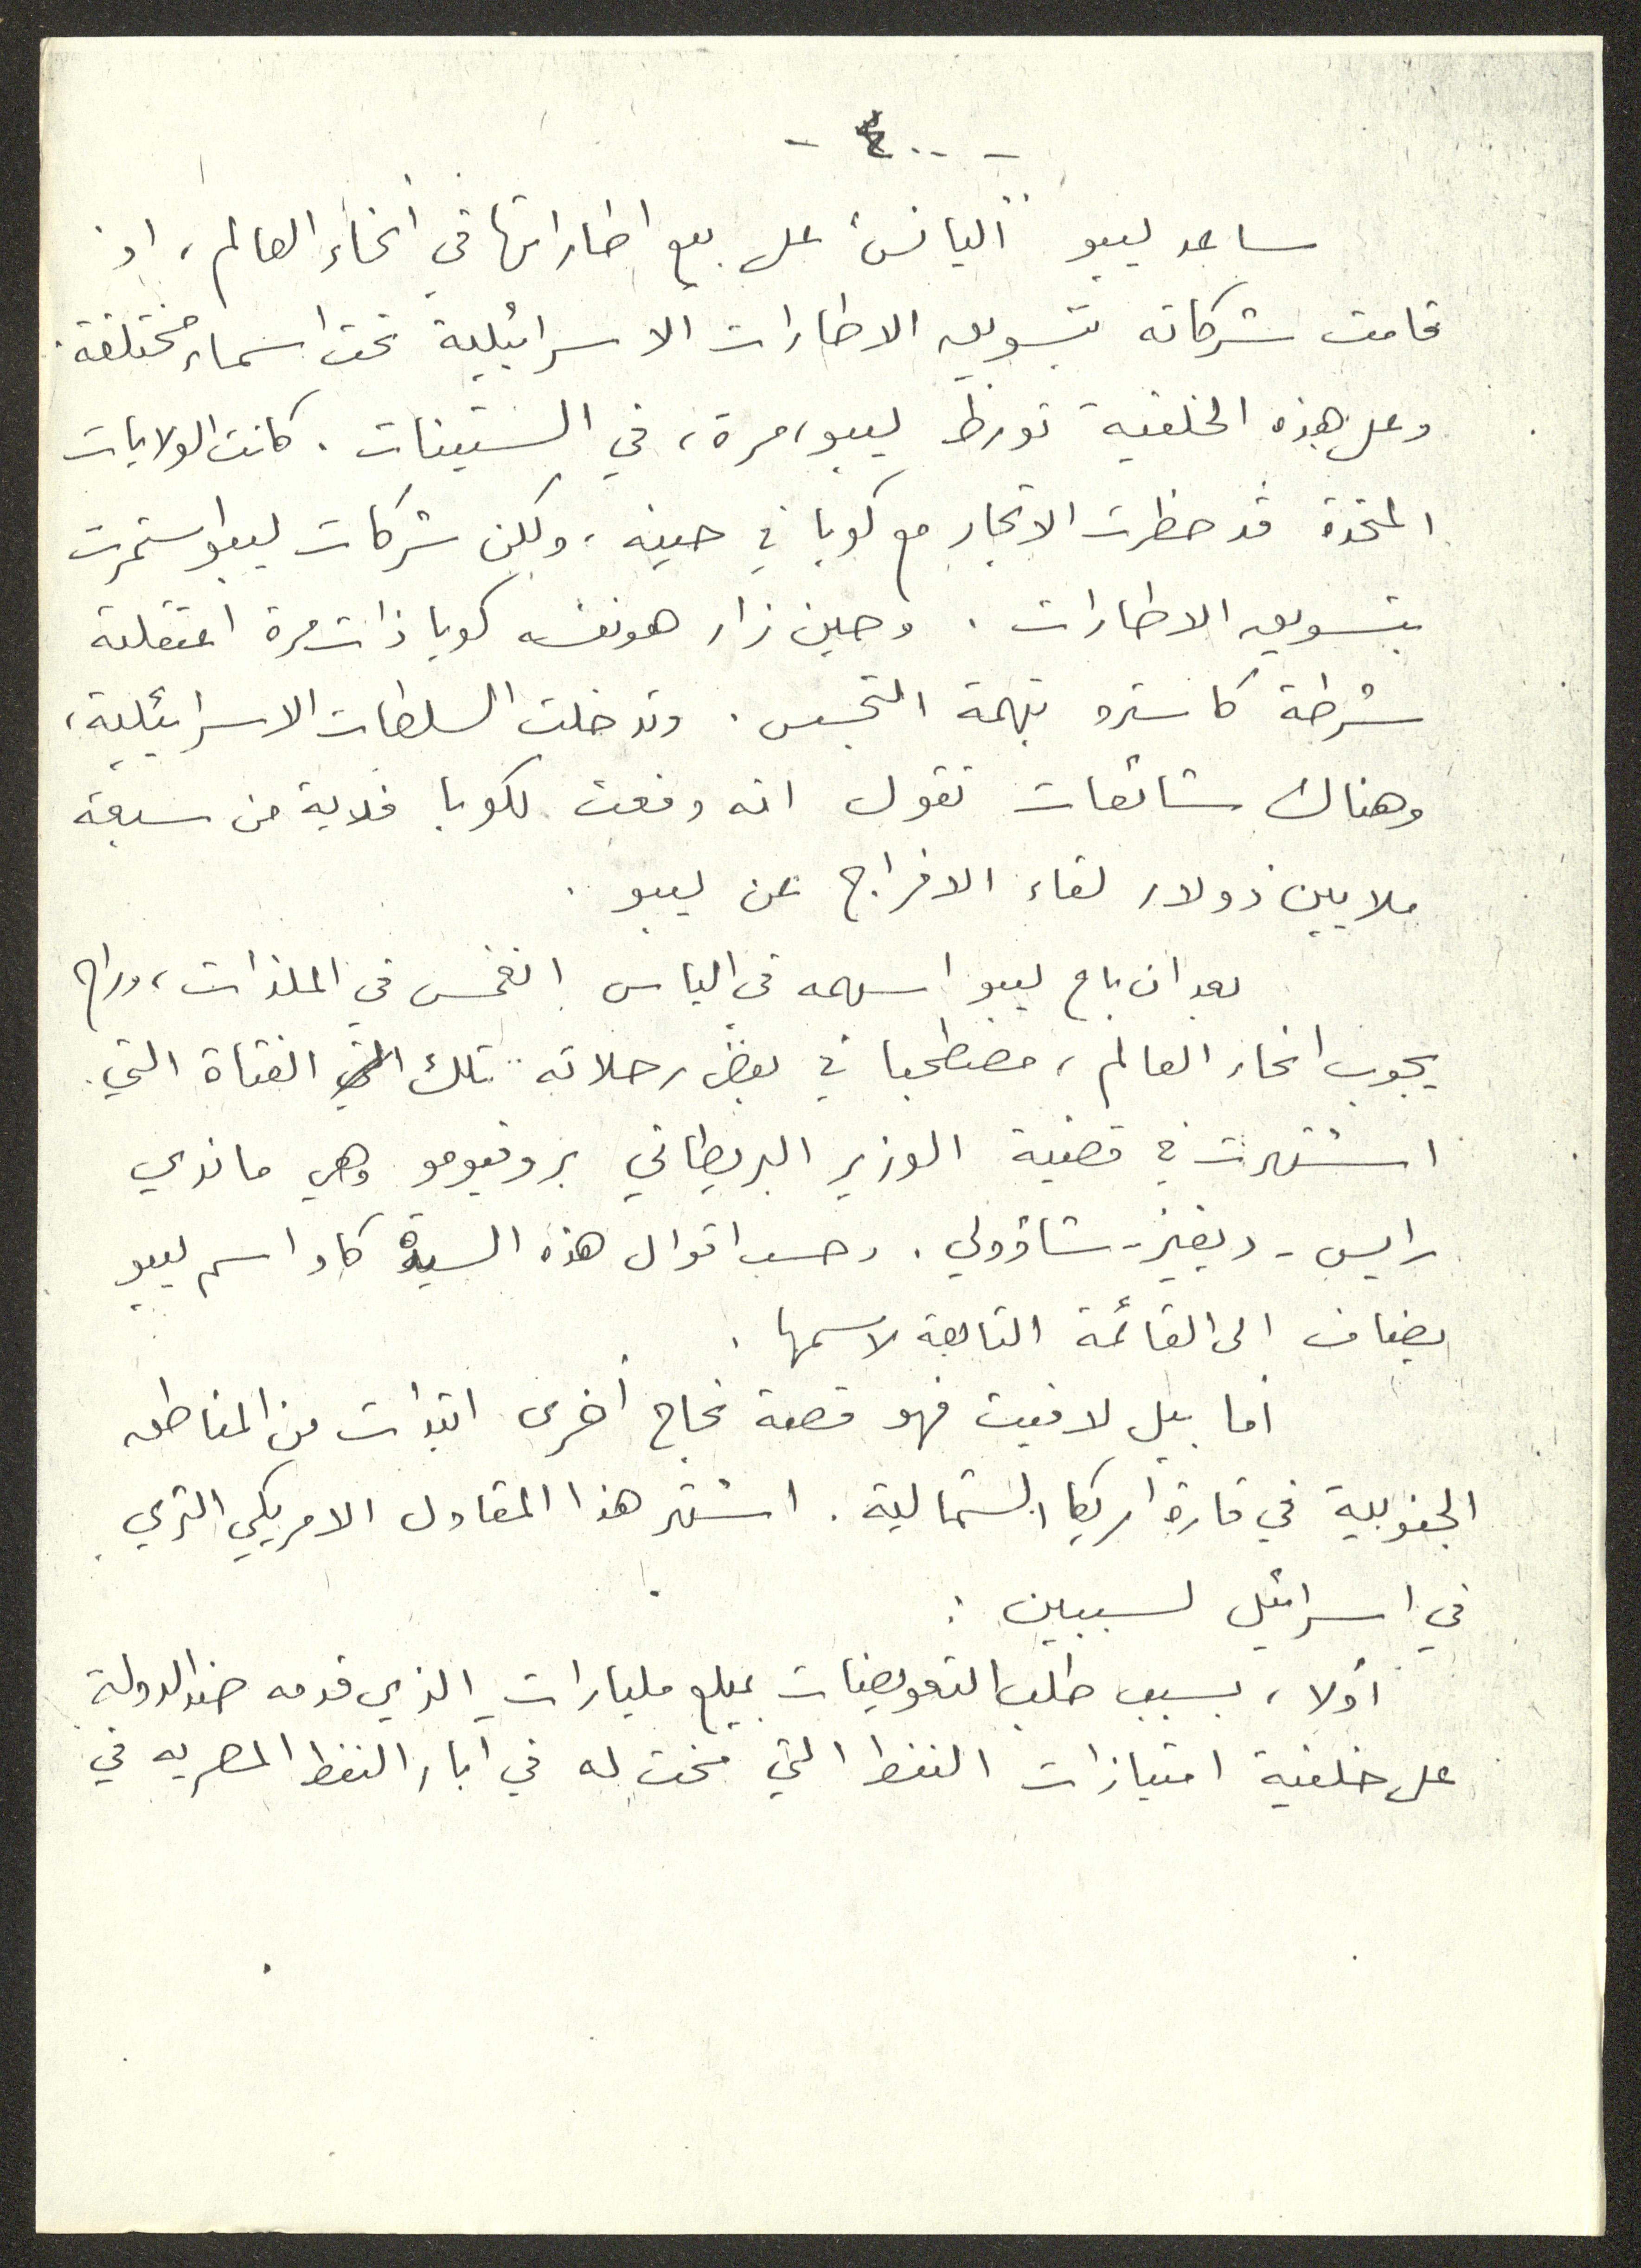 - ٤٠٠ -
ساعد ليبو "اليانس" على بيع اطاراتها في أنحاء العالم، اذ
قامت شركاته بتسويق الاطارات الاسرائيلية تحت اسماء مختلفة.
وعلى هذه الخلفية تورط ليبو، مرة، في الستينات. كانت الولايات
المتحدة قد حظرت الاتجار مع كوبا في حينه، ولكن شركات ليبو استمرت
بتسويق الاطارات. وحين زار هو نفسه كوبا ذات مرة اعتقلته
شرطة كاسترو بتهمة التجسس. وتدخلت السلطات الاسرائيلية،
وهناك شائعات تقول انه دفعت لكوبا فدية من سبعة
ملايين دولار لقاء الافراج عن ليبو.
بعد ان باع ليبو اسهمه في اليانس انغمس في الملذات، وراح
يجوب انحاء العالم، مصطحبا في بعض رحلاته تلك الفتاة التي
اشتهرت في قضية الوزير البريطاني بروفيومو وهي ماندي
رايس - ديفيز - شاؤولي. وحسب اقوال هذه السيدة كاد اسم ليبو
يضاف الى القائمة التابعة لاسمها.
أما بيل لافيت فهو قصة نجاح أخرى ابتدأت من المناطق
الجنوبية في قارة امريكا الشمالية. اشتهر هذا المقاول الامريكي الثري
في اسرائيل لسببين :
أولا، بسبب طلب التعويضات بمبلغ مليارات الذي قدمه ضد الدولة
على خلفية امتيازات النفط التي منحت له في آبار النفط المصريه في